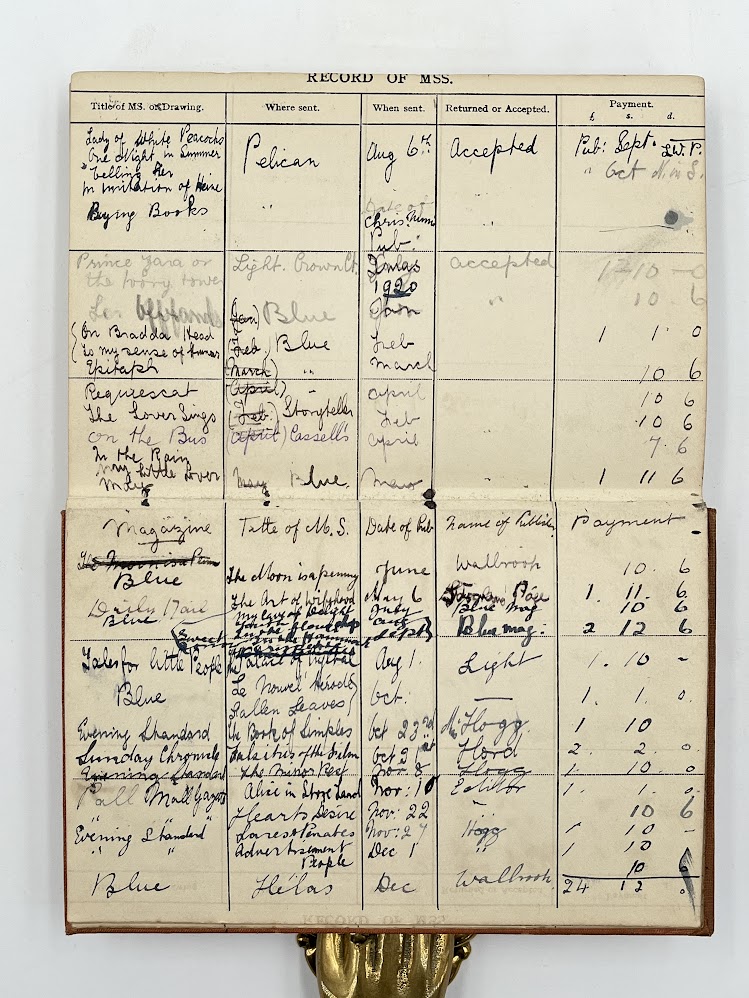 RECORD OF MSS.
Title of MS. or Drawing. Where sent. When sent. Returned or Accepted. Payment.
£ s. d.
Lady of White Peacocks
One Night in Summer Pelican Aug 6th Accepted Pub: Sept. L.W.P.
"Telling Her " Oct
In Imitation of Heine
Buying Books " Date of
Chris. Num "
Pub:
Prince Yara or Light. Crown Ct. Xmas accepted 1 - 10 - 0
the Ivory tower 1920
(Jan) Blue Jan " 10. 6
On Bradda Head (Feb) Blue Feb 1 1. 0
To my sense of humour
Epitaph (March) " March 10 6
Requiescat (April) " April 10 6
The Lover Sings (Feb. Storyteller Feb 10 6
On the Bus (April) Cassell's April 7. 6
In the Rain
My Little Lover May Blue. May " 1 11 6
May
Magazine Title of M.S. Date of Pub Name of Publisher Payment
The Moon is a Penny
Blue The Moon is a penny June Walbrook 10. 6
Daily Mail The Art of Wifehood May 6 Page 1. 11. 6
Blue My Love of Delight July Blue Mag 10 6
Sweet Aug
Sept) Blue mag: 2 12 6
Tales for Little People The Palace of Crystal Aug 1. Light 1. 10 -
Blue Le Nouvel Hérode Oct. — 1. 1. 0.
Fallen Leaves
Evening Standard The Book of Simples Oct 23rd Mr Hogg 1 10
Sunday Chronicle Falsities of the Film Oct 31st Hord 2. 2. 0
Evening Standard The Minor Poet Nov. 8 Hogg 1. 10. 0
Pall Mall Gazette Alice in Stageland Nov: 10 Editor 1. 1. 0
" " Hearts Desire Nov: 22 " 10 6
Evening Standard Lares & Penates Nov: 27 Hogg 1 10 -
" " Advertisement Dec 1 " 1 10
People 10 0
Blue Hélas Dec Walbrook. 24 12 0